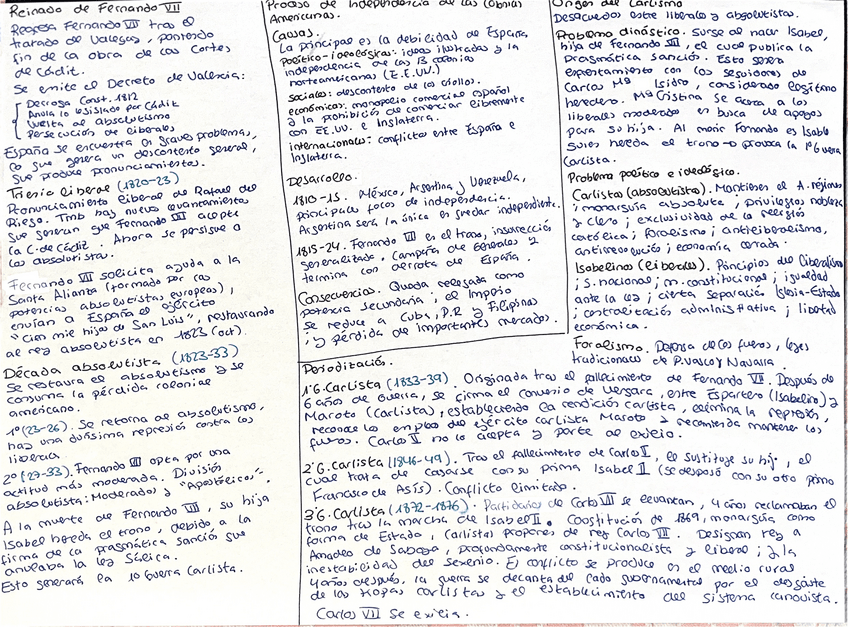 Reinado de Fernando VII
Regresa Fernando VII tras el
tratado de Valençay, poniendo
fin de la obra de las Cortes
de Cádiz.
Se emite el Decreto de Valencia:
Deroga Const. 1812
Anula lo legislado por Cádiz
Vuelta al absolutismo
Persecución de liberales
España se encuentra en graves problemas,
lo que genera un descontento general,
que produce pronunciamientos.
Trienio liberal (1820-23)
Pronunciamiento liberal de Rafael del
Riego. Tmb hay nuevos levantamientos
que generan que Fernando VII acepte
la C. de Cádiz. Ahora se persigue a
los absolutistas.
Fernando VII solicita ayuda a la
Santa Alianza (formado por las
potencias absolutistas europeas),
envían a España el ejército
"Cien mil hijos de San Luis", restaurando
al rey absolutista en 1823 (oct).
Década absolutista (1823-33)
Se restaura el absolutismo y se
consuma la pérdida colonial
americano.
1º (23-26). Se retorna al absolutismo,
hay una durísima represión contra los
liberales.
2º (27-33). Fernando VII opta por una
actitud más moderada. División
absolutista: Moderados y "Apostólicos".
A la muerte de Fernando VII, su hija
Isabel hereda el trono, debido a la
firma de la pragmática sanción que
anulaba la ley Sálica.
Esto generará la 1º Guerra Carlista.
Proceso de Independencia de las Colonias
Americanas.
Causas.
La principal es la debilidad de España,
político-ideológicas: ideas ilustradas y la
independencia de las 13 colonias
norteamericanas (E.E.UU.)
sociales: descontento de los criollos.
económicos: monopolio comercial español
y la prohibición de comerciar libremente
con EE.UU. e Inglaterra.
internacionales: conflictos entre España e
Inglaterra.
Desarrollo.
1810-15. México, Argentina y Venezuela,
principales focos de independencia.
Argentina será la única en quedar independiente.
1815-24. Fernando VII en el trono, insurrección
generalizada, campaña de generales y
termina con derrota de España.
Consecuencias. Queda relegada como
potencia secundaria; el Imperio
se reduce a Cuba, P.R y Filipinas
; y pérdida de importantes mercados.
Origen del Carlismo
Desacuerdos entre liberales y absolutistas.
Problema dinástico. Surge al nacer Isabel,
hija de Fernando VII, el cual publica la
Pragmática Sanción. Esto será
enfrentamiento con los seguidores de
Carlos Mª Isidro, considerado legítimo
heredero. Mª Cristina se acerca a los
liberales moderados en busca de apoyos
para su hija. Al morir Fernando es Isabel
quien hereda el trono → provoca la 1º Guerra
Carlista.
Problema político e ideológico.
Carlistas (absolutistas). Mantienen el A. régimen
; monarquía absoluta; privilegios nobleza
y clero; exclusividad de la religión
católica; foralismo; antiliberalismo,
antirrevolución; economía cerrada.
Isabelinos (liberales). Principios del Liberalismo
; S. nacional; m. constitucional; igualdad
ante la ley; cierta separación Iglesia-Estado
; centralización administrativa; libertad
económica.
Foralismo. Defensa de los fueros, leyes
tradicionales de P. Vasco y Navarra.
Periodización.
1ºG. Carlista (1833-39). Originada tras el fallecimiento de Fernando VII. Después de
6 años de guerra, se firma el convenio de Vergara, entre Espartero (Isabelino) y
Maroto (Carlista), estableciendo la rendición carlista, elimina la represión,
reconoce los empleos del ejército carlista Maroto y recomienda mantener los
fueros. Carlos V no lo acepta y parte al exilio.
2ºG. Carlista (1846-49). Tras el fallecimiento de Carlos V, el sustituye su hijo, el
cual trata de casarse con su prima Isabel II (se desposó con su otro primo
Francisco de Asís). Conflicto limitado.
3ºG. Carlista (1872-1876). Partidarios de Carlos VII se levantan, 4 años reclamaban el
trono tras la marcha de Isabel II. Constitución de 1869, monarquía como
forma de Estado, Carlistas proponen de rey Carlos VII. Designan rey a
Amadeo de Saboya, profundamente constitucionalista y liberal; y la
inestabilidad del sexenio. El conflicto se produce en el medio rural
4 años después, la guerra se decanta del lado gubernamental por el desgaste
de las tropas carlistas y el establecimiento del sistema canovista.
Carlos VII se exilia.